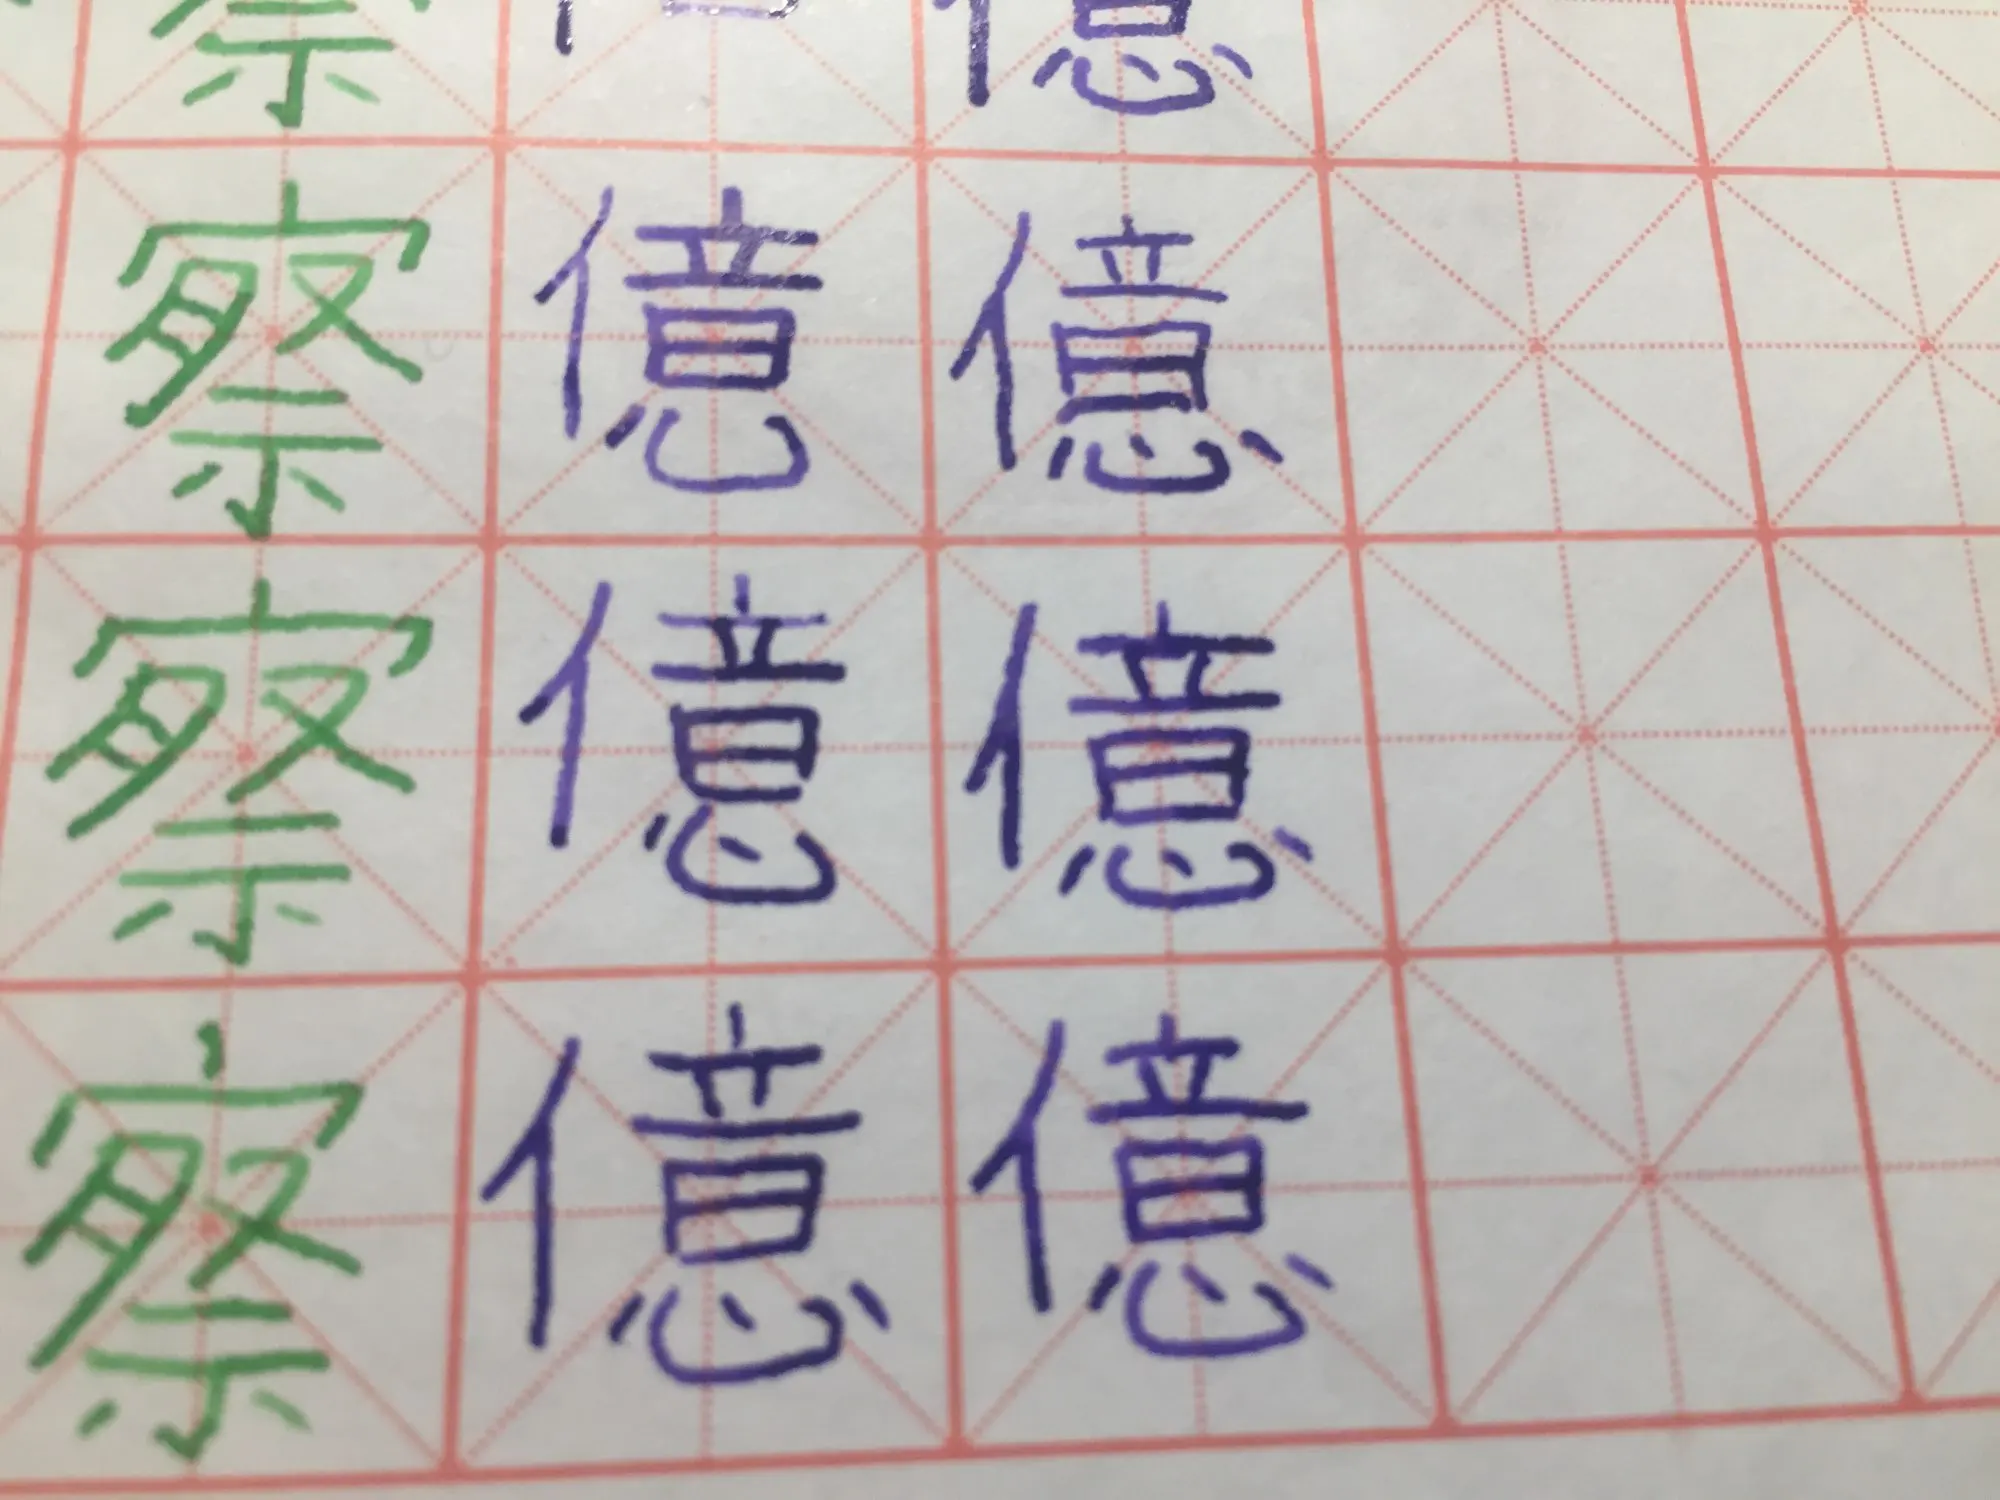 察 億
察 億 億
察 億 億
察 億 億